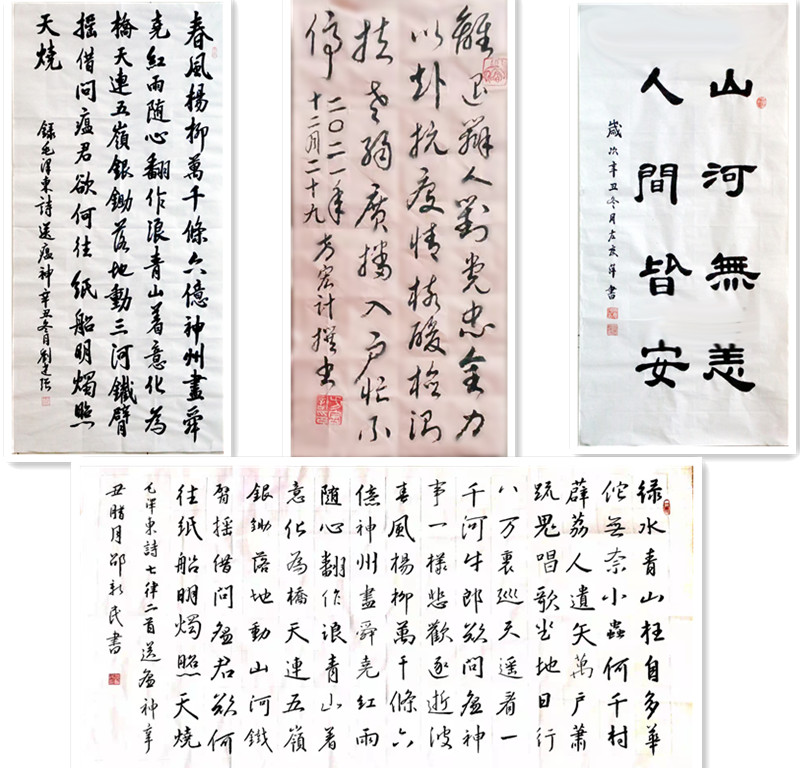 春風楊柳萬千條六億神州盡舜
堯紅雨随心翻作浪青山著意化為
橋天連五嶺銀鋤落地動三河鐵臂
摇借問瘟君欲何往紙船明燭照
天燒
録毛澤東詩送瘟神辛丑冬月劉建
離退人對党忠全力
以赴抗疫情核酸检测
扶老廣播入户忙不
停
二〇二一年
十二月二十九 方宏计撰书
山河無恙
人間皆安
歲次辛丑冬月左友萍書
绿水青山枉自多華
佗无奈小蟲何千村
薜荔人遺矢萬户蕭
疏鬼唱歌坐地日行
八万裏巡天遥看一
千河牛郎欲問瘟神
事一樣悲歡逐逝波
春風楊柳萬千條六
億神州盡舜堯红雨
随心翻作浪青山着
意化為橋天連五嶺
銀鋤落地動山河鐵
臂摇借問瘟君欲何
往紙船明燭照天燒
毛泽東詩七律二首送瘟神辛
丑腊月邵新民書